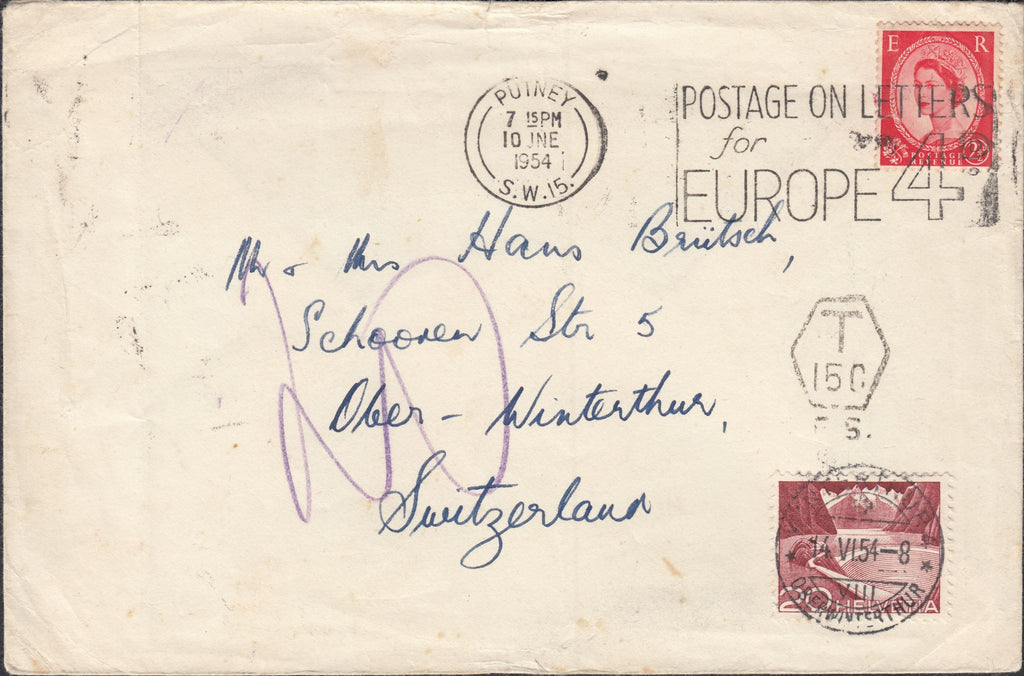 E R
POSTAGE REVENUE
2½
PUTNEY
7 15PM
10 JNE
1954
S.W.15.
POSTAGE ON LETTERS
for
EUROPE 4D
Mr & Mrs Hans Brütsch,
Schooren Str 5
Ober - Winterthur,
Switzerland
20
T
15C
S.
14 VI 54-8
VIII
OBERWINTERTHUR
20 HELVETIA